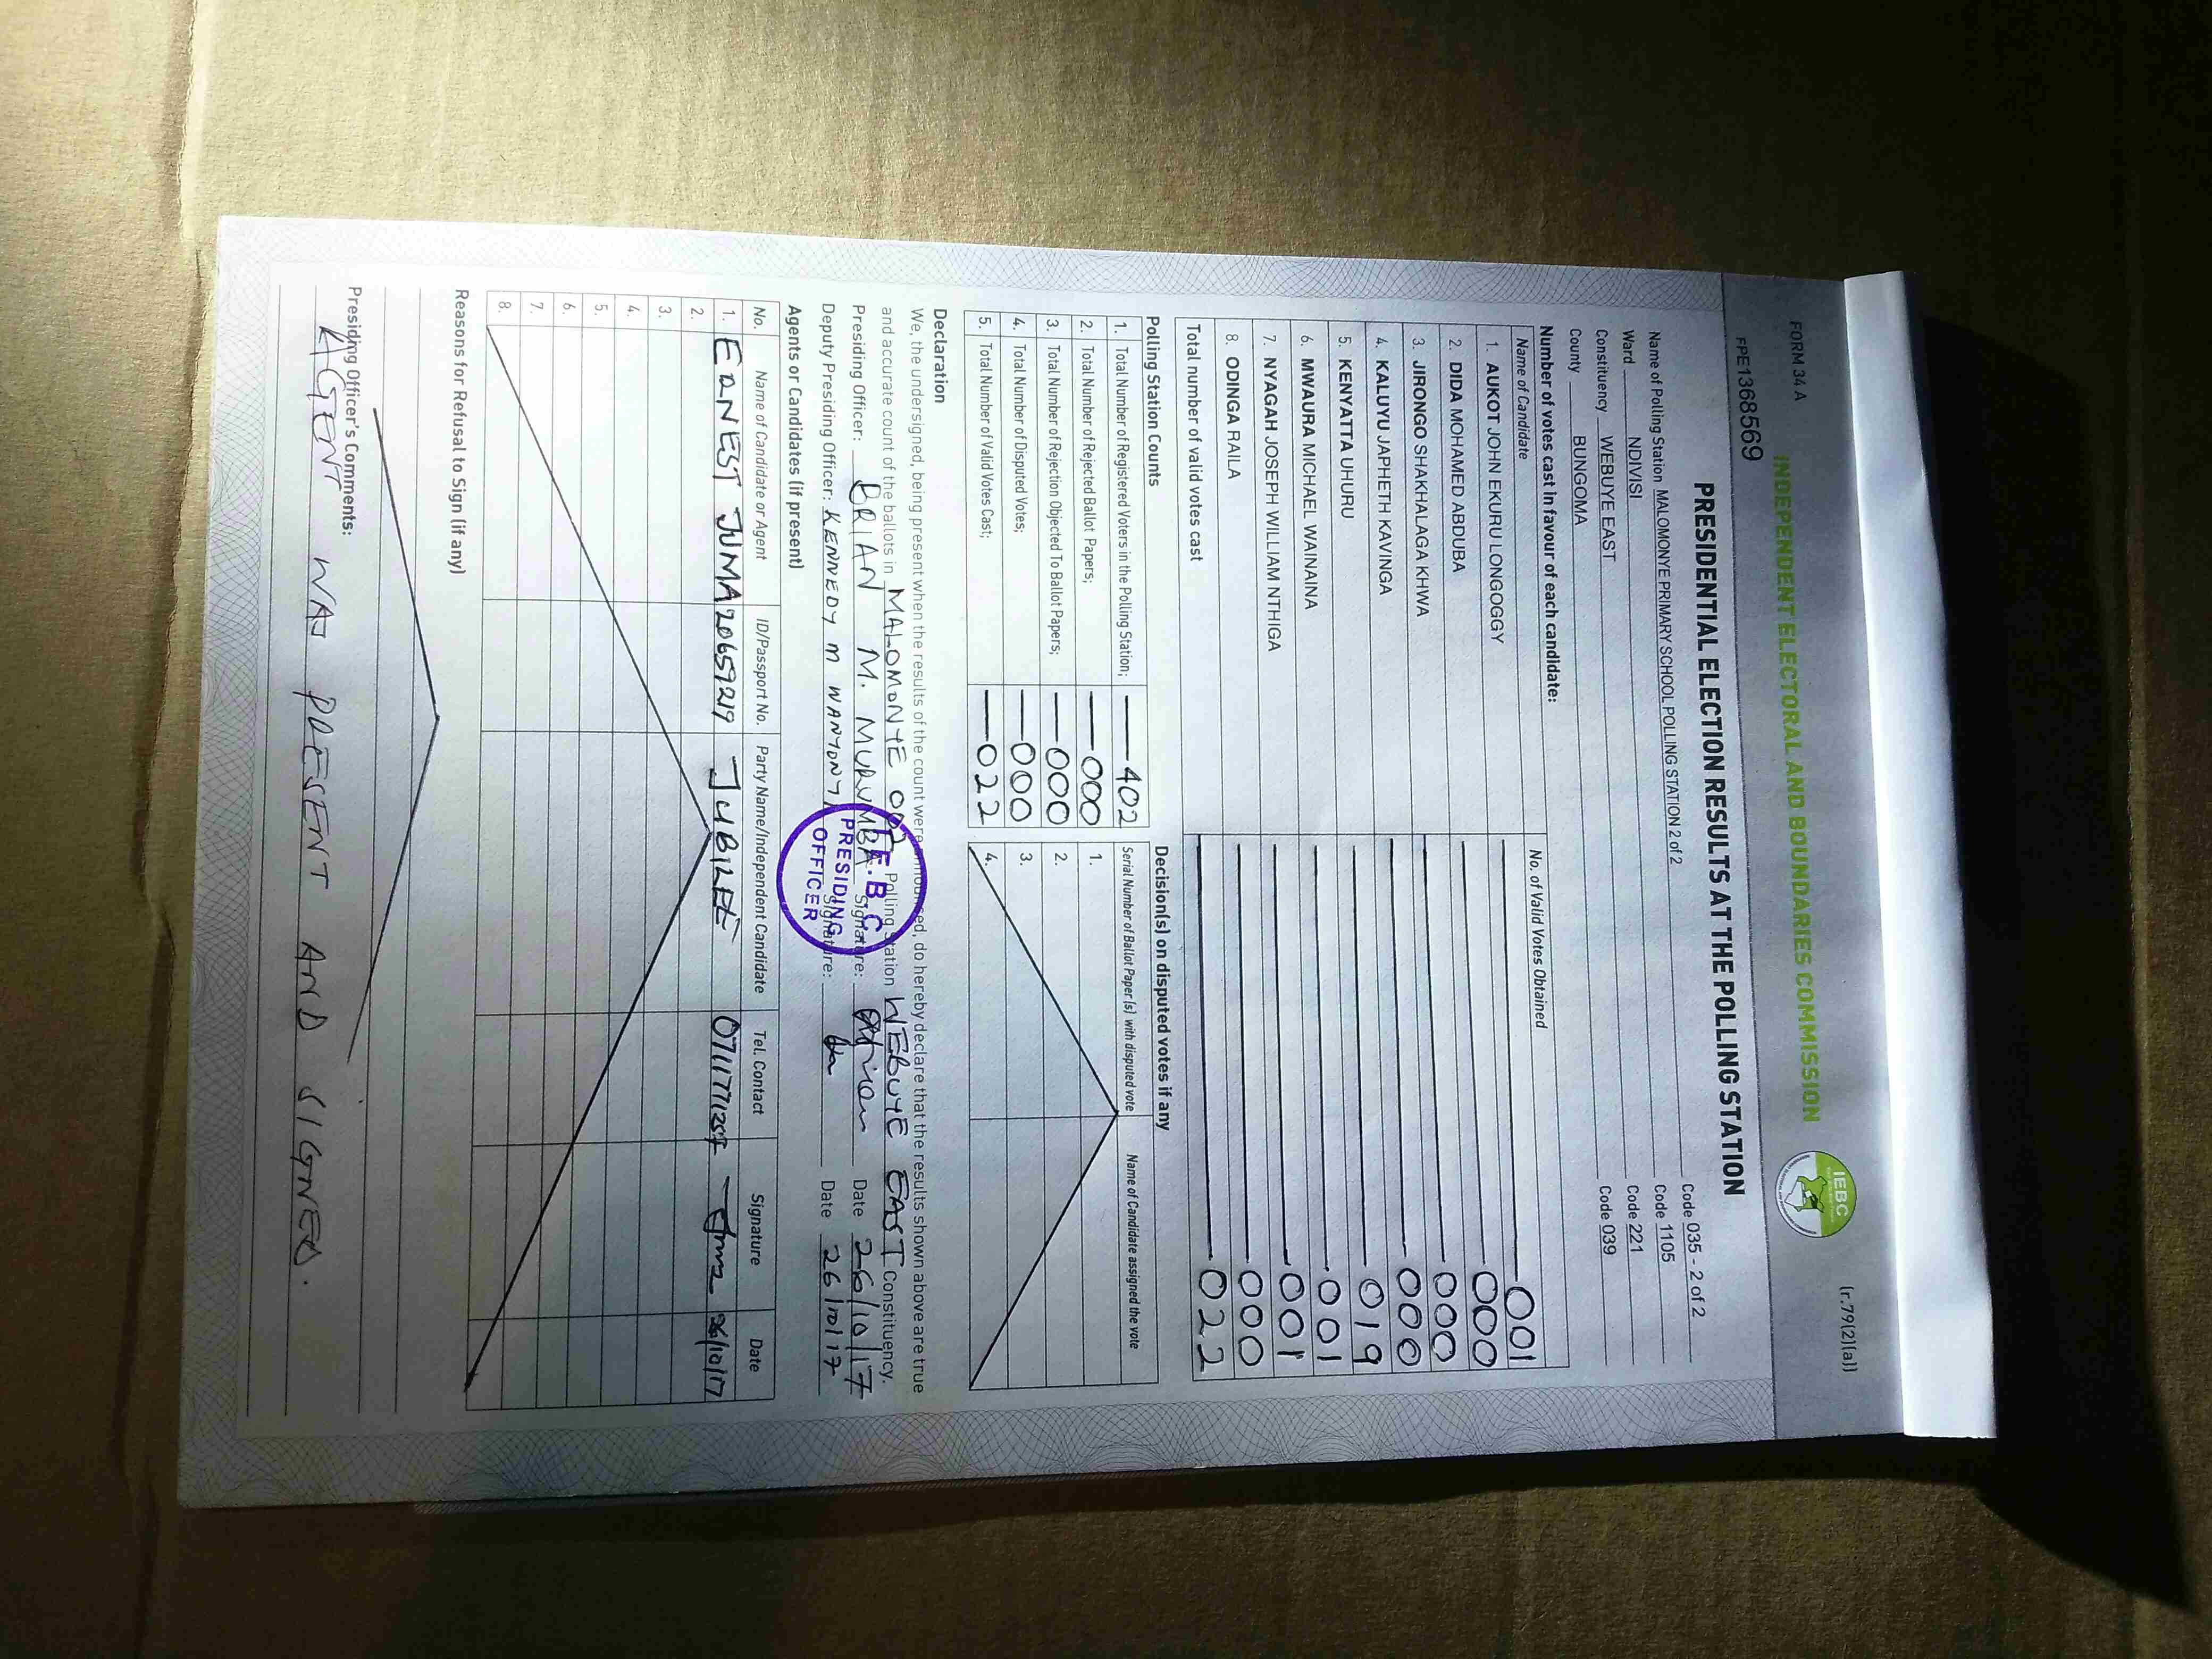 FORM 34 A
(r.79(2)(a))
INDEPENDENT ELECTORAL AND BOUNDARIES COMMISSION
IEBC
FPE1368569
PRESIDENTIAL ELECTION RESULTS AT THE POLLING STATION
Name of Polling Station MALOMONYE PRIMARY SCHOOL POLLING STATION 2 of 2 Code 035 - 2 of 2
Ward NDIVISI Code 1105
Constituency WEBUYE EAST Code 221
County BUNGOMA Code 039
Number of votes cast in favour of each candidate:
Name of Candidate No. of Valid Votes Obtained
1. AUKOT JOHN EKURU LONGOGGY 001
2. DIDA MOHAMED ABDUBA 000
3. JIRONGO SHAKHALAGA KHWA 000
4. KALUYU JAPHETH KAVINGA 000
5. KENYATTA UHURU 019
6. MWAURA MICHAEL WAINAINA 001
7. NYAGAH JOSEPH WILLIAM NTHIGA 001
8. ODINGA RAILA 000
Total number of valid votes cast 022
Polling Station Counts
1. Total Number of Registered Voters in the Polling Station; 402
2. Total Number of Rejected Ballot Papers; 000
3. Total Number of Rejection Objected To Ballot Papers; 000
4. Total Number of Disputed Votes; 000
5. Total Number of Valid Votes Cast; 022
Decision(s) on disputed votes if any
Serial Number of Ballot Paper (s) with disputed vote Name of Candidate assigned the vote
1.
2.
3.
4.
Declaration
We, the undersigned, being present when the results of the count were announced, do hereby declare that the results shown above are true
and accurate count of the ballots in MALOMONYE Polling Station WEBUYE EAST Constituency.
Presiding Officer: BRIAN M. MURUMBA Signature: Date 26/10/17
Deputy Presiding Officer: KENNEDY M WANYONYI Signature: Date 26/10/17
I.E.B.C
PRESIDING
OFFICER
Agents or Candidates (if present)
No. Name of Candidate or Agent ID/Passport No. Party Name/Independent Candidate Tel. Contact Signature Date
1. EONEST JUMA 20659219 JUBILEE 26/10/17
2.
3.
4.
5.
6.
7.
8.
Reasons for Refusal to Sign (if any)
Presiding Officer's Comments:
AGENT WAS PRESENT AND SIGNED.